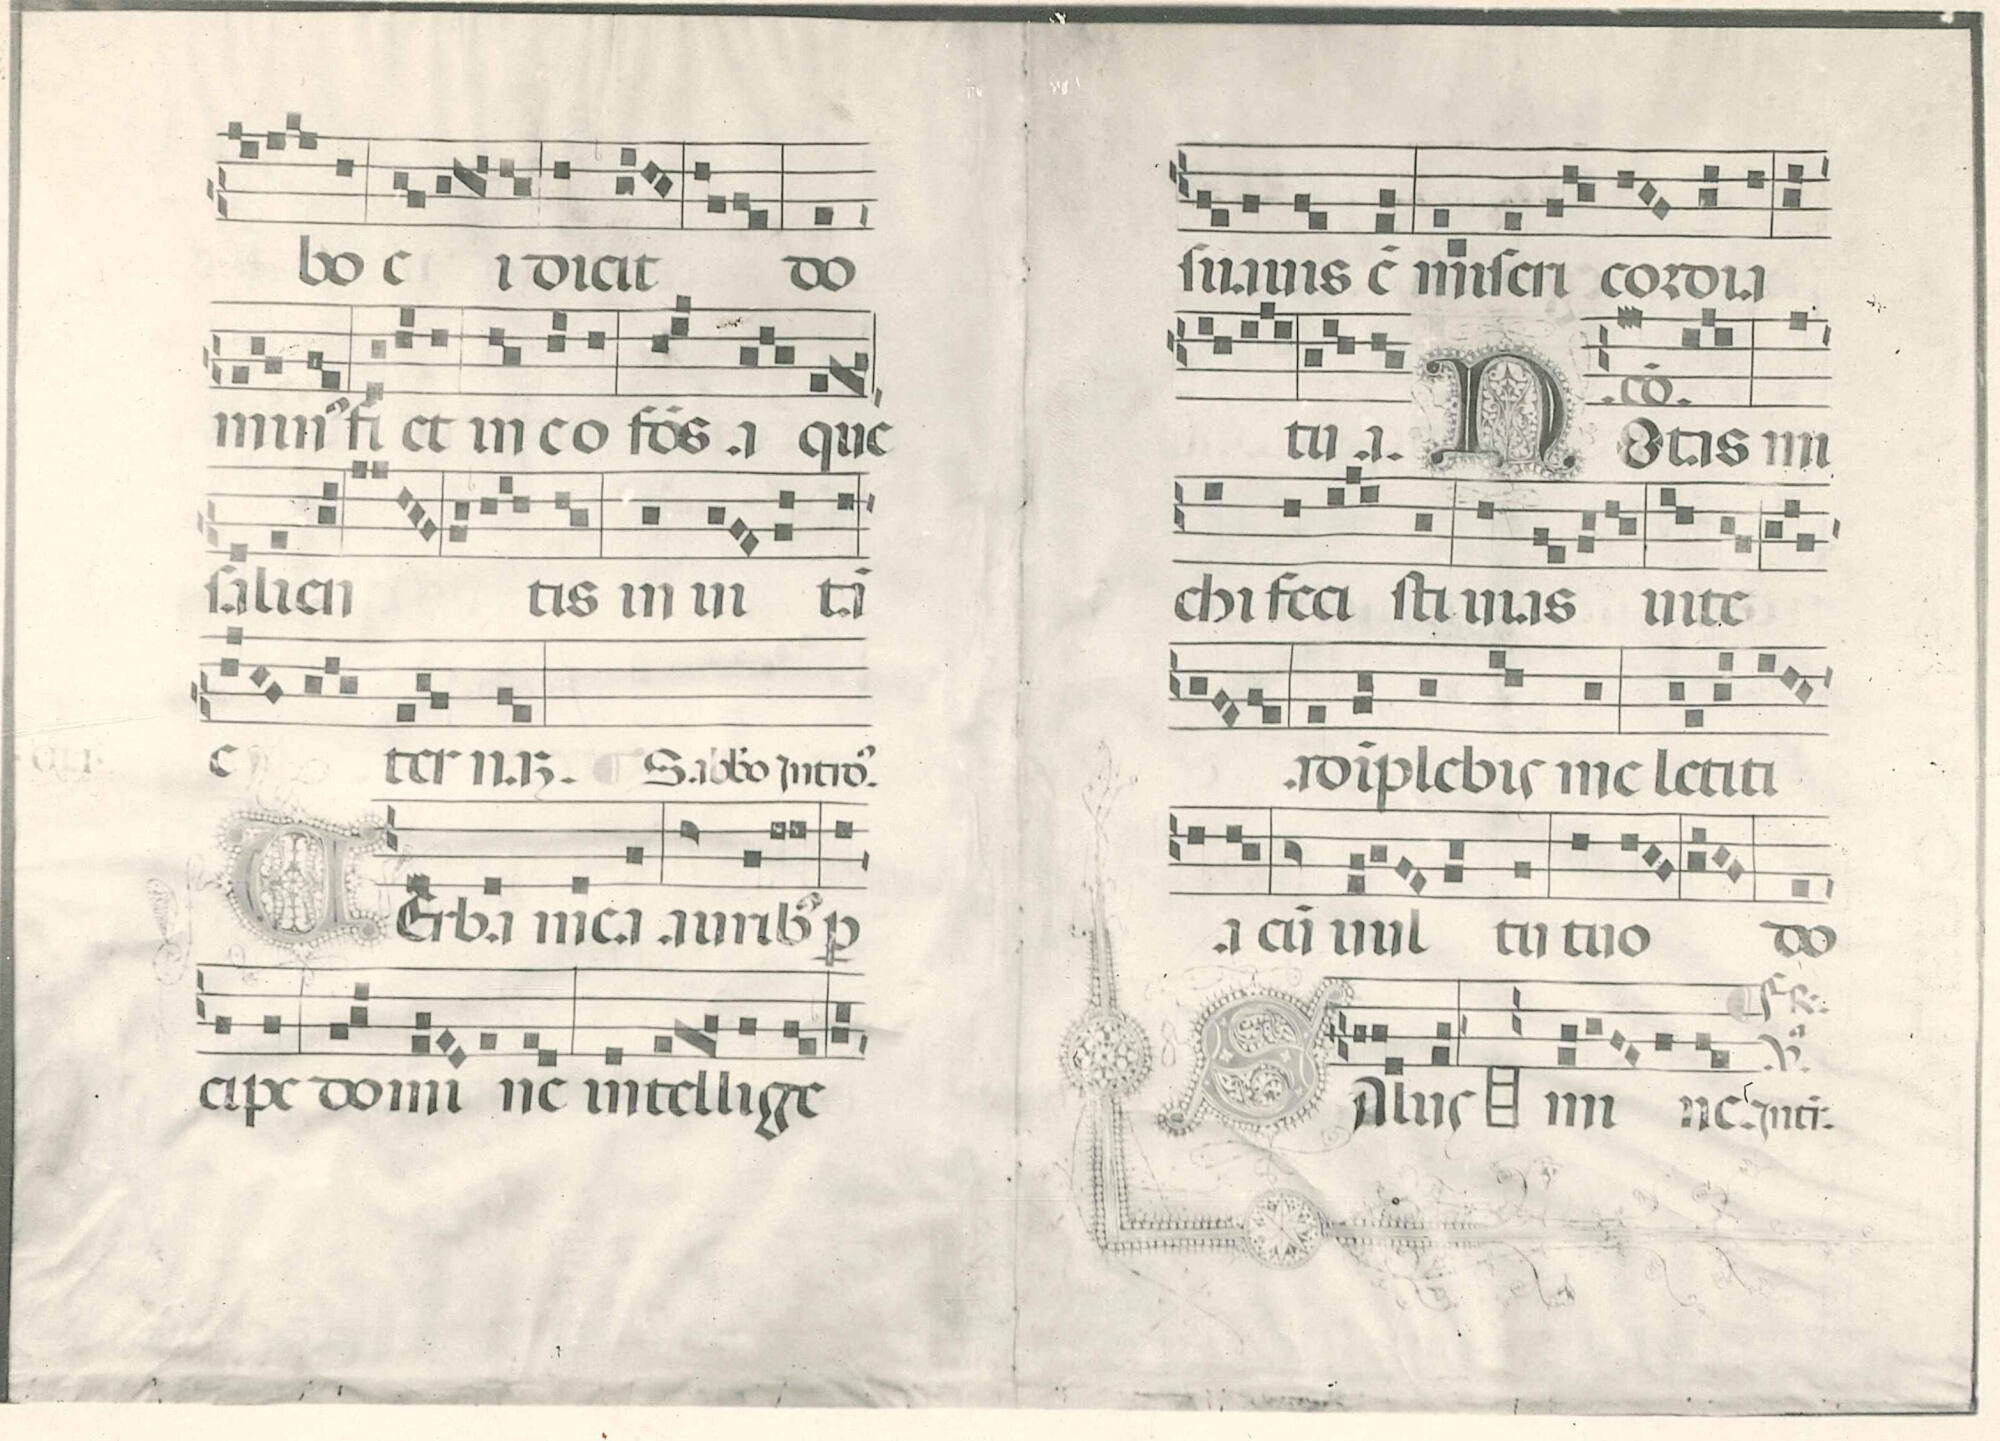 bo e i dicit do
min⁹ fi et in eo fōs .a que
salien tis in ui tā
e ter n.ā. Sabb'o Introˀ.
UErba mea aurib⁹ p
cipe domi ne intellige
suauis ē miseri cordia
tu a. .cō.
NOtas mi
chi feci sti uias uite
adīplebis me letiti
a cū uul tu tuo do
SAlus mi ne. Inti.
fR.